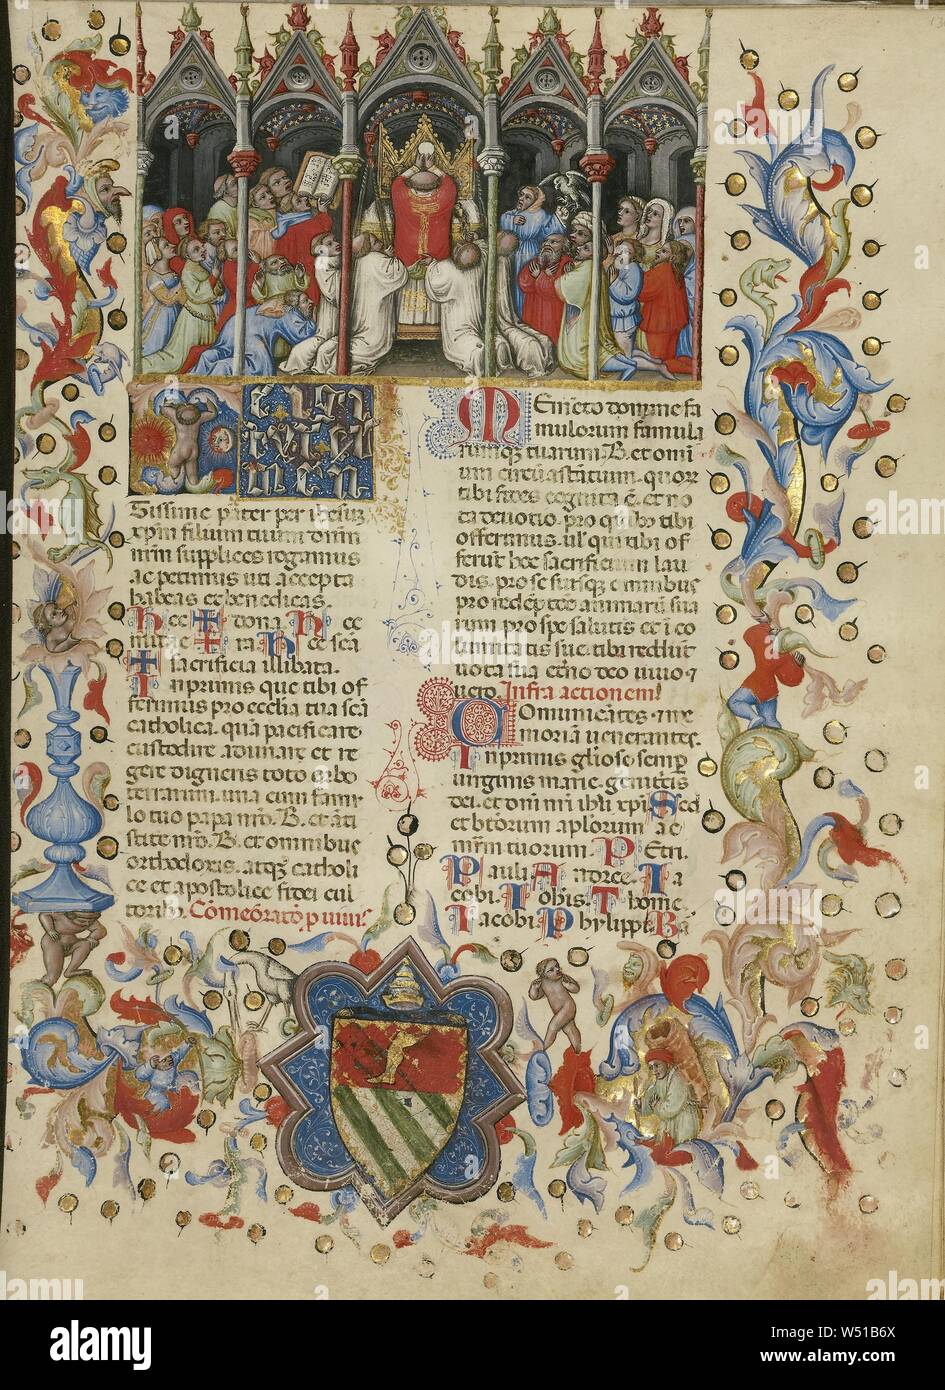 E igi
tur cle
men
tissime pater per ihesum
xpm filium tuum domi
num supplices rogamus
ac petimus uti accepta
habeas et benedicas
hec dona. hec
munera hec sca
sacrificia illibata.
Inprimis que tibi of
ferimus pro ecclia tua scā
catholica. quā pacificare
custodire adunare et re
gere digneris toto orbe
terrarum. una cum famu
lo tuo papa nr̄o. B. et āti
stite nr̄o. B. et omnibus
orthodoxis. atq; catholi
ce et apostolice fidei cul
toribꝰ. Cōmeōratō p uiuis
MEm̄eto domine fa
mulorum famula
rumq; tuarum. B. et omī
um circūastātium. quor
tibi fides cognita ē. et no
ta deuotio. pro quibꝰ tibi
offerimus. ul' qui tibi of
ferūt hoc sacrificium lau
dis. pro se suisq; omnibus
pro redēptōe animarū sua
rum pro spe salutis et ico
lumitatis sue. tibi reddūt
uota sua et̄no deo uiuo ⁊
uero. Infra actionem
COmunicātes. me
moriā uenerantes.
Inprimis gliose semp
uirginis marie. genitcis
dei. et dnī nr̄i ihū xpi. Sed
et btorum aplorum ac
mr̄m tuorum. PEtri.
Pauli. Andree. Ia
cobi. Iohis. Thome
Iacobi. Phylippi. Ba
alamy
W51B6X
alamy
Image ID: W51B6X
www.alamy.com